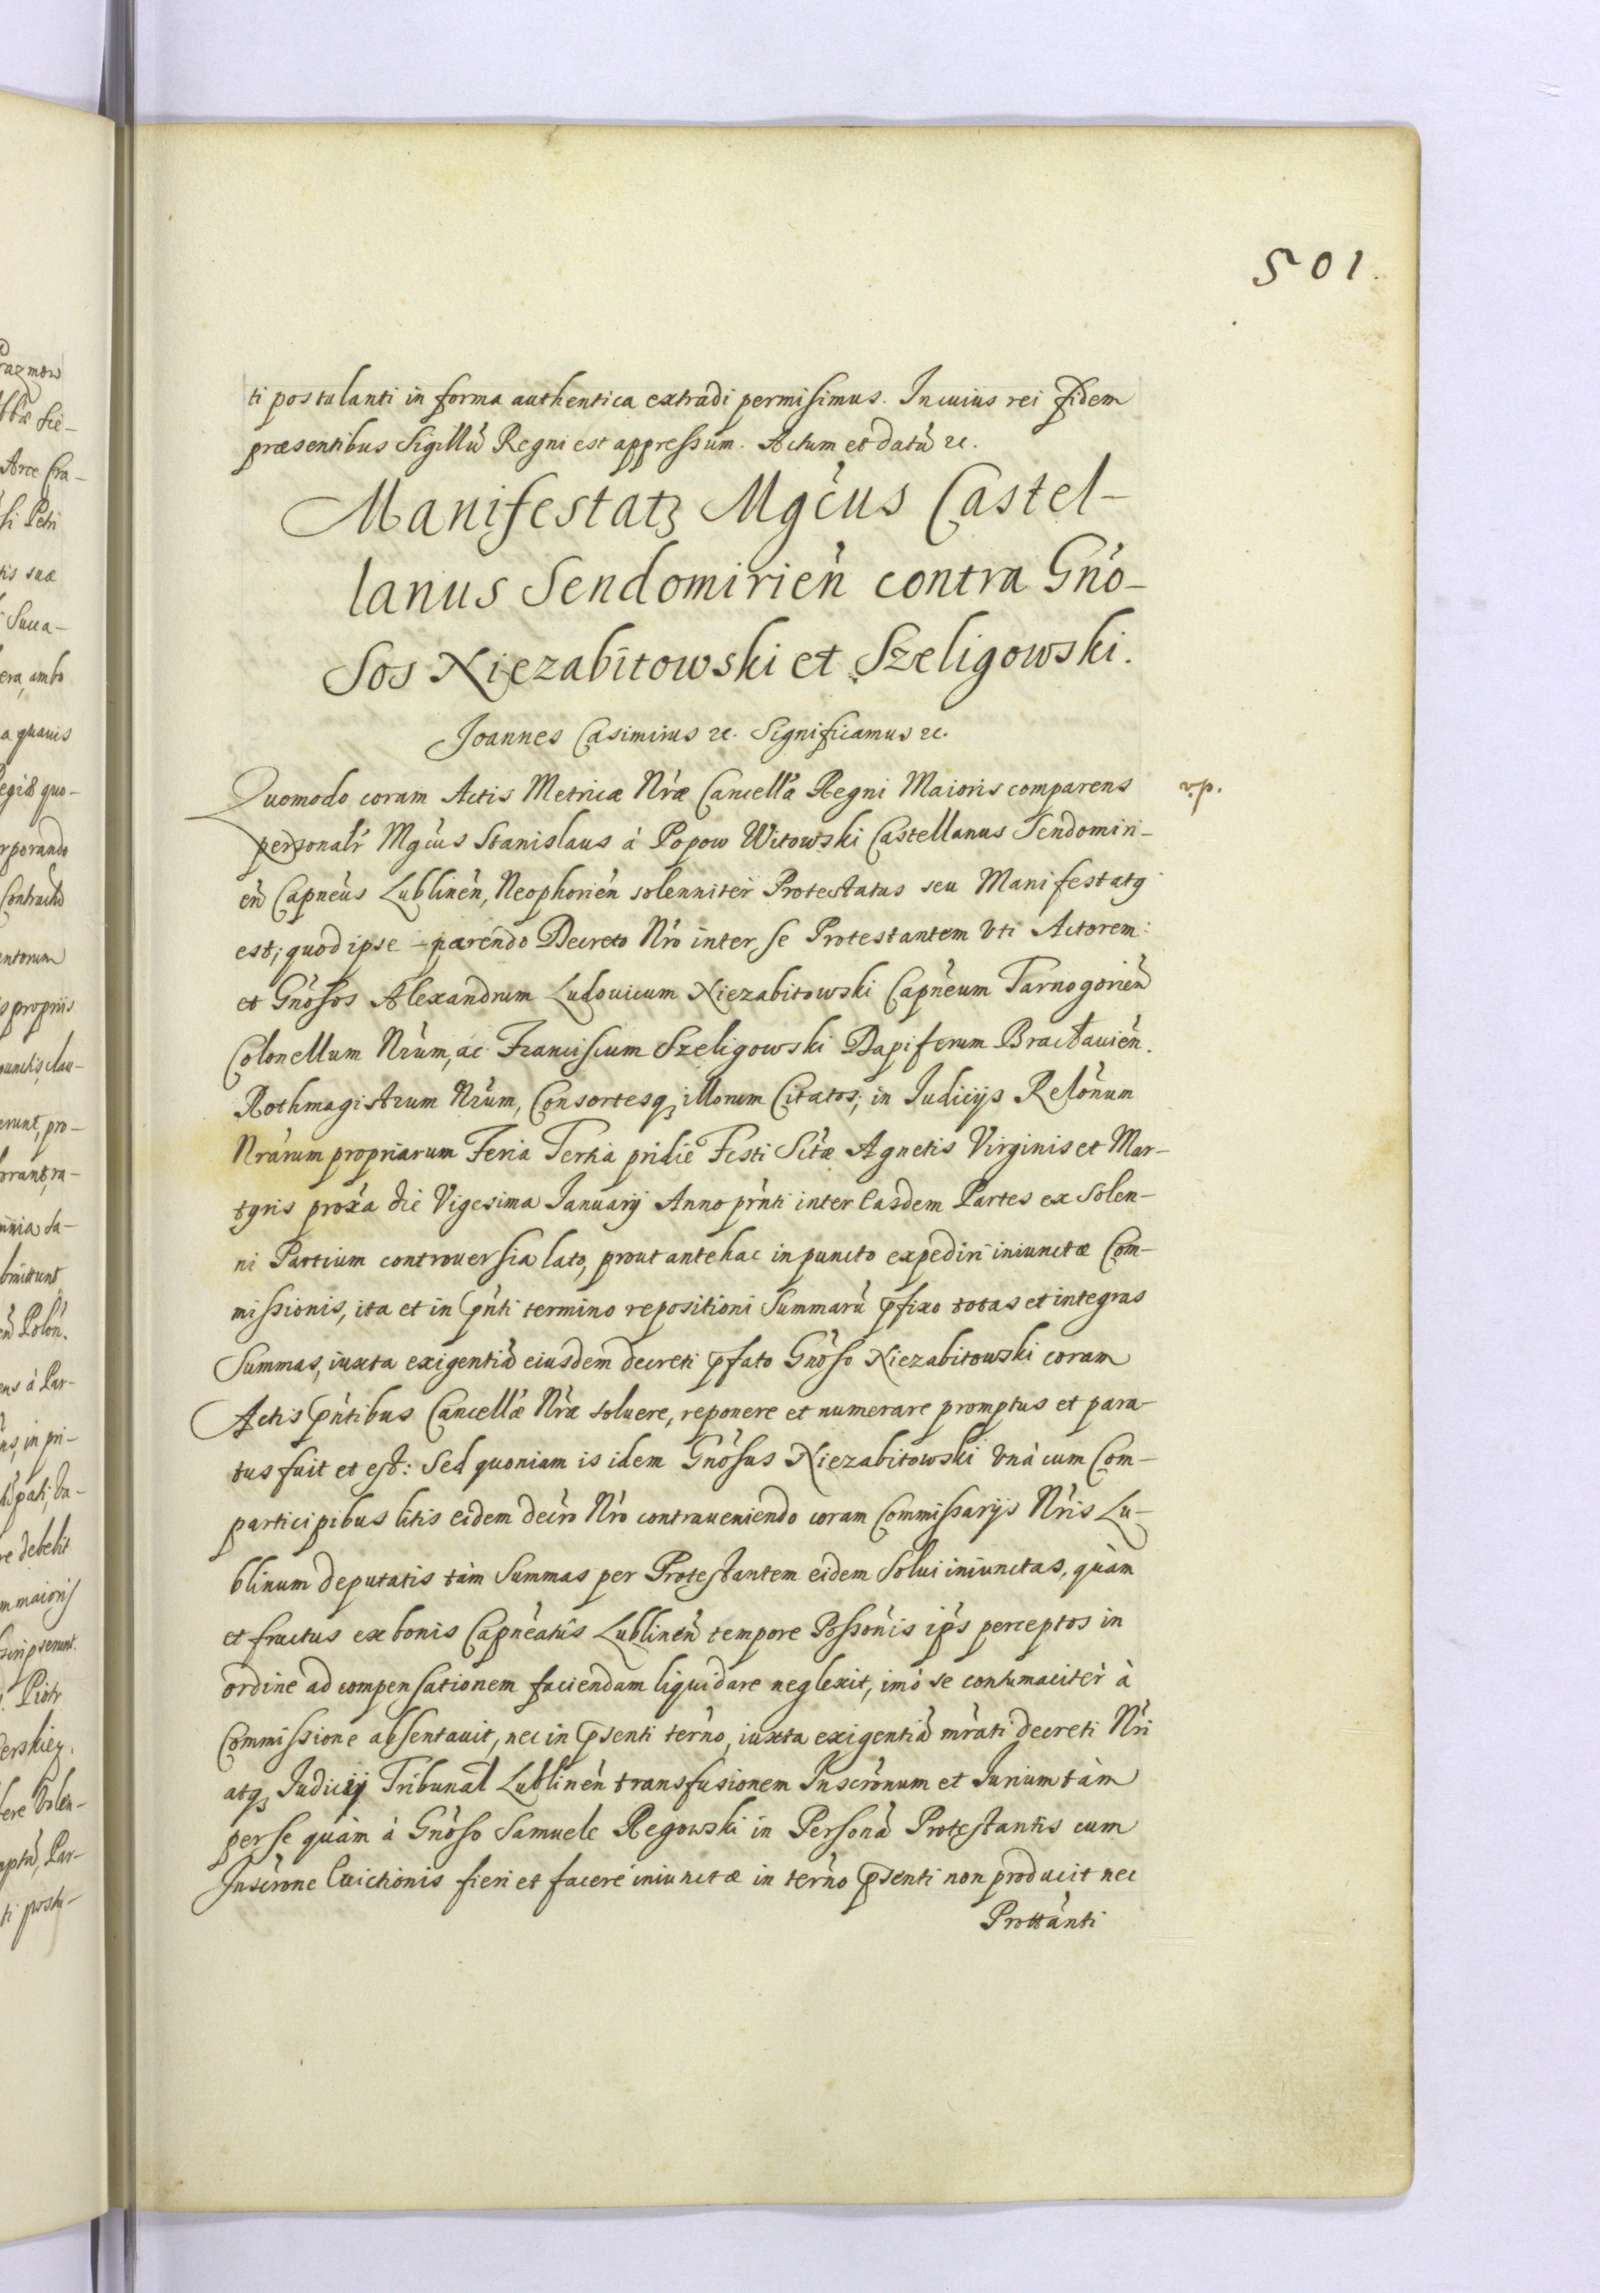 501
ti postulanti in forma authentica extradi permisimus. In cuius rei fidem
præsentibus Sigillũ Regni est appressum. Actum et datũ &c.
Manifestatꝫ Mgc̃us Castel-
lanus Sendomirien̄ contra Gn̄o-
sos Niezabitowski et Szeligowski.
Joannes Casimirus &c. Significamus &c.
Quomodo coram Actis Metricæ Nr̃æ Cancellã Regni Maioris comparens v.p.
personalr̃ Mgc̃us Stanislaus á Popow Witowski Castellanus Sendomiri-
en̄ Capn̄eus Lublinen̄, Neophorien̄ solenniter Protestatus seu Manifestatꝗ
est; quod ipse parendo Decreto Nr̃o inter se Protestantem vti Actorem:
et Gn̄osos Alexandrum Ludouicum Niezabitowski Capn̄eum Tarnogorien̄
Colonellum Nr̃um, ac Franciscum Szeligowski Dapiferum Bractauien̄.
Rothmagistrum Nr̃um, Consortesqꝫ illorum Citatos; in Iudicijs Relõnum
Nr̃arum propriarum Feria Tertia pridie Festi Sc̃tæ Agnetis Virginis et Mar-
tyris prox̃a die Vigesima Ianuarij Anno pr̃nti inter Easdem Partes ex Solen-
ni Partium controuersia lato, prout antehac in puncto expediri iniunctæ Com-
missionis, ita et in pñti termino repositioni Summarũ p̄fixo totas et integras
Summas, iuxta exigentiã eiusdem decreti p̄fato Gn̄oso Niezabitowski coram
Actis pñtibus Cancellæ Nr̃æ soluere, reponere et numerare promptus et para-
tus fuit et est: Sed quoniam is idem Gn̄osus Niezabitowski vnà cum Com-
participibus litis eidem decr̃o Nr̃o contraueniendo coram Commissarijs Nr̃is Lu-
blinum deputatis tàm Summas per Protestantem eidem Solui iniunctas, quàm
et fructus ex bonis Capn̄eatûs Lublinen̄ tempore Possõnis ip̃s perceptos in
ordine ad compensationem faciendam liquidare neglexit, imò se contumaciter à
Commissione absentauit, nec in p̄senti ter̃no, iuxta exigentiã mr̃ati decreti Nr̃i
atqꝫ Iudicij Tribunal Lublinen̄ transfusionem Inscr̃onum et Iurium tàm
per se quàm à Gn̄oso Samuele Regowski in Personã Protestantis cum
Inscr̃one Euictionis fieri et facere iniunctæ in ter̃no p̄senti non producit nec
Prottãnti